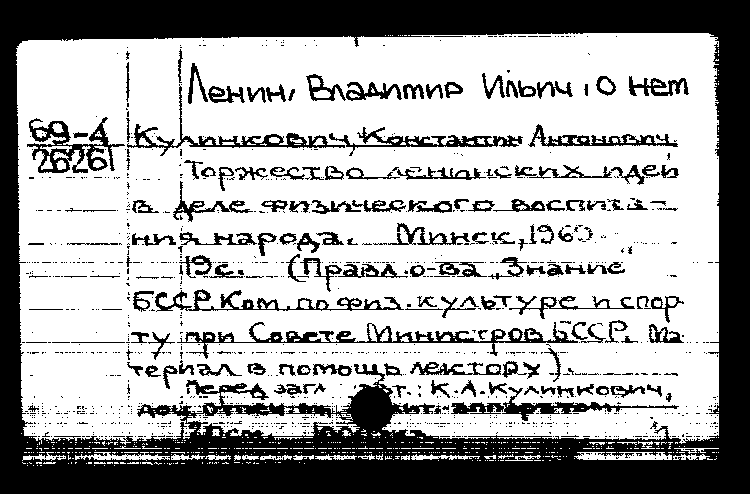 Ленин, Владимир Ильич, о нем
69-4
26261
Кулинкович, Константин Антонович.
Торжество ленинских идей
в деле физического воспита-
ния народа. Минск, 1969.
19с. (Правл. о-ва "Знание"
БССР. Ком. по физ. культуре и спор-
ту при Совете Министров БССР. Ма-
териал в помощь лектору).
Перед загл. авт.: К.А. Кулинкович,
аппаратом.
20см.